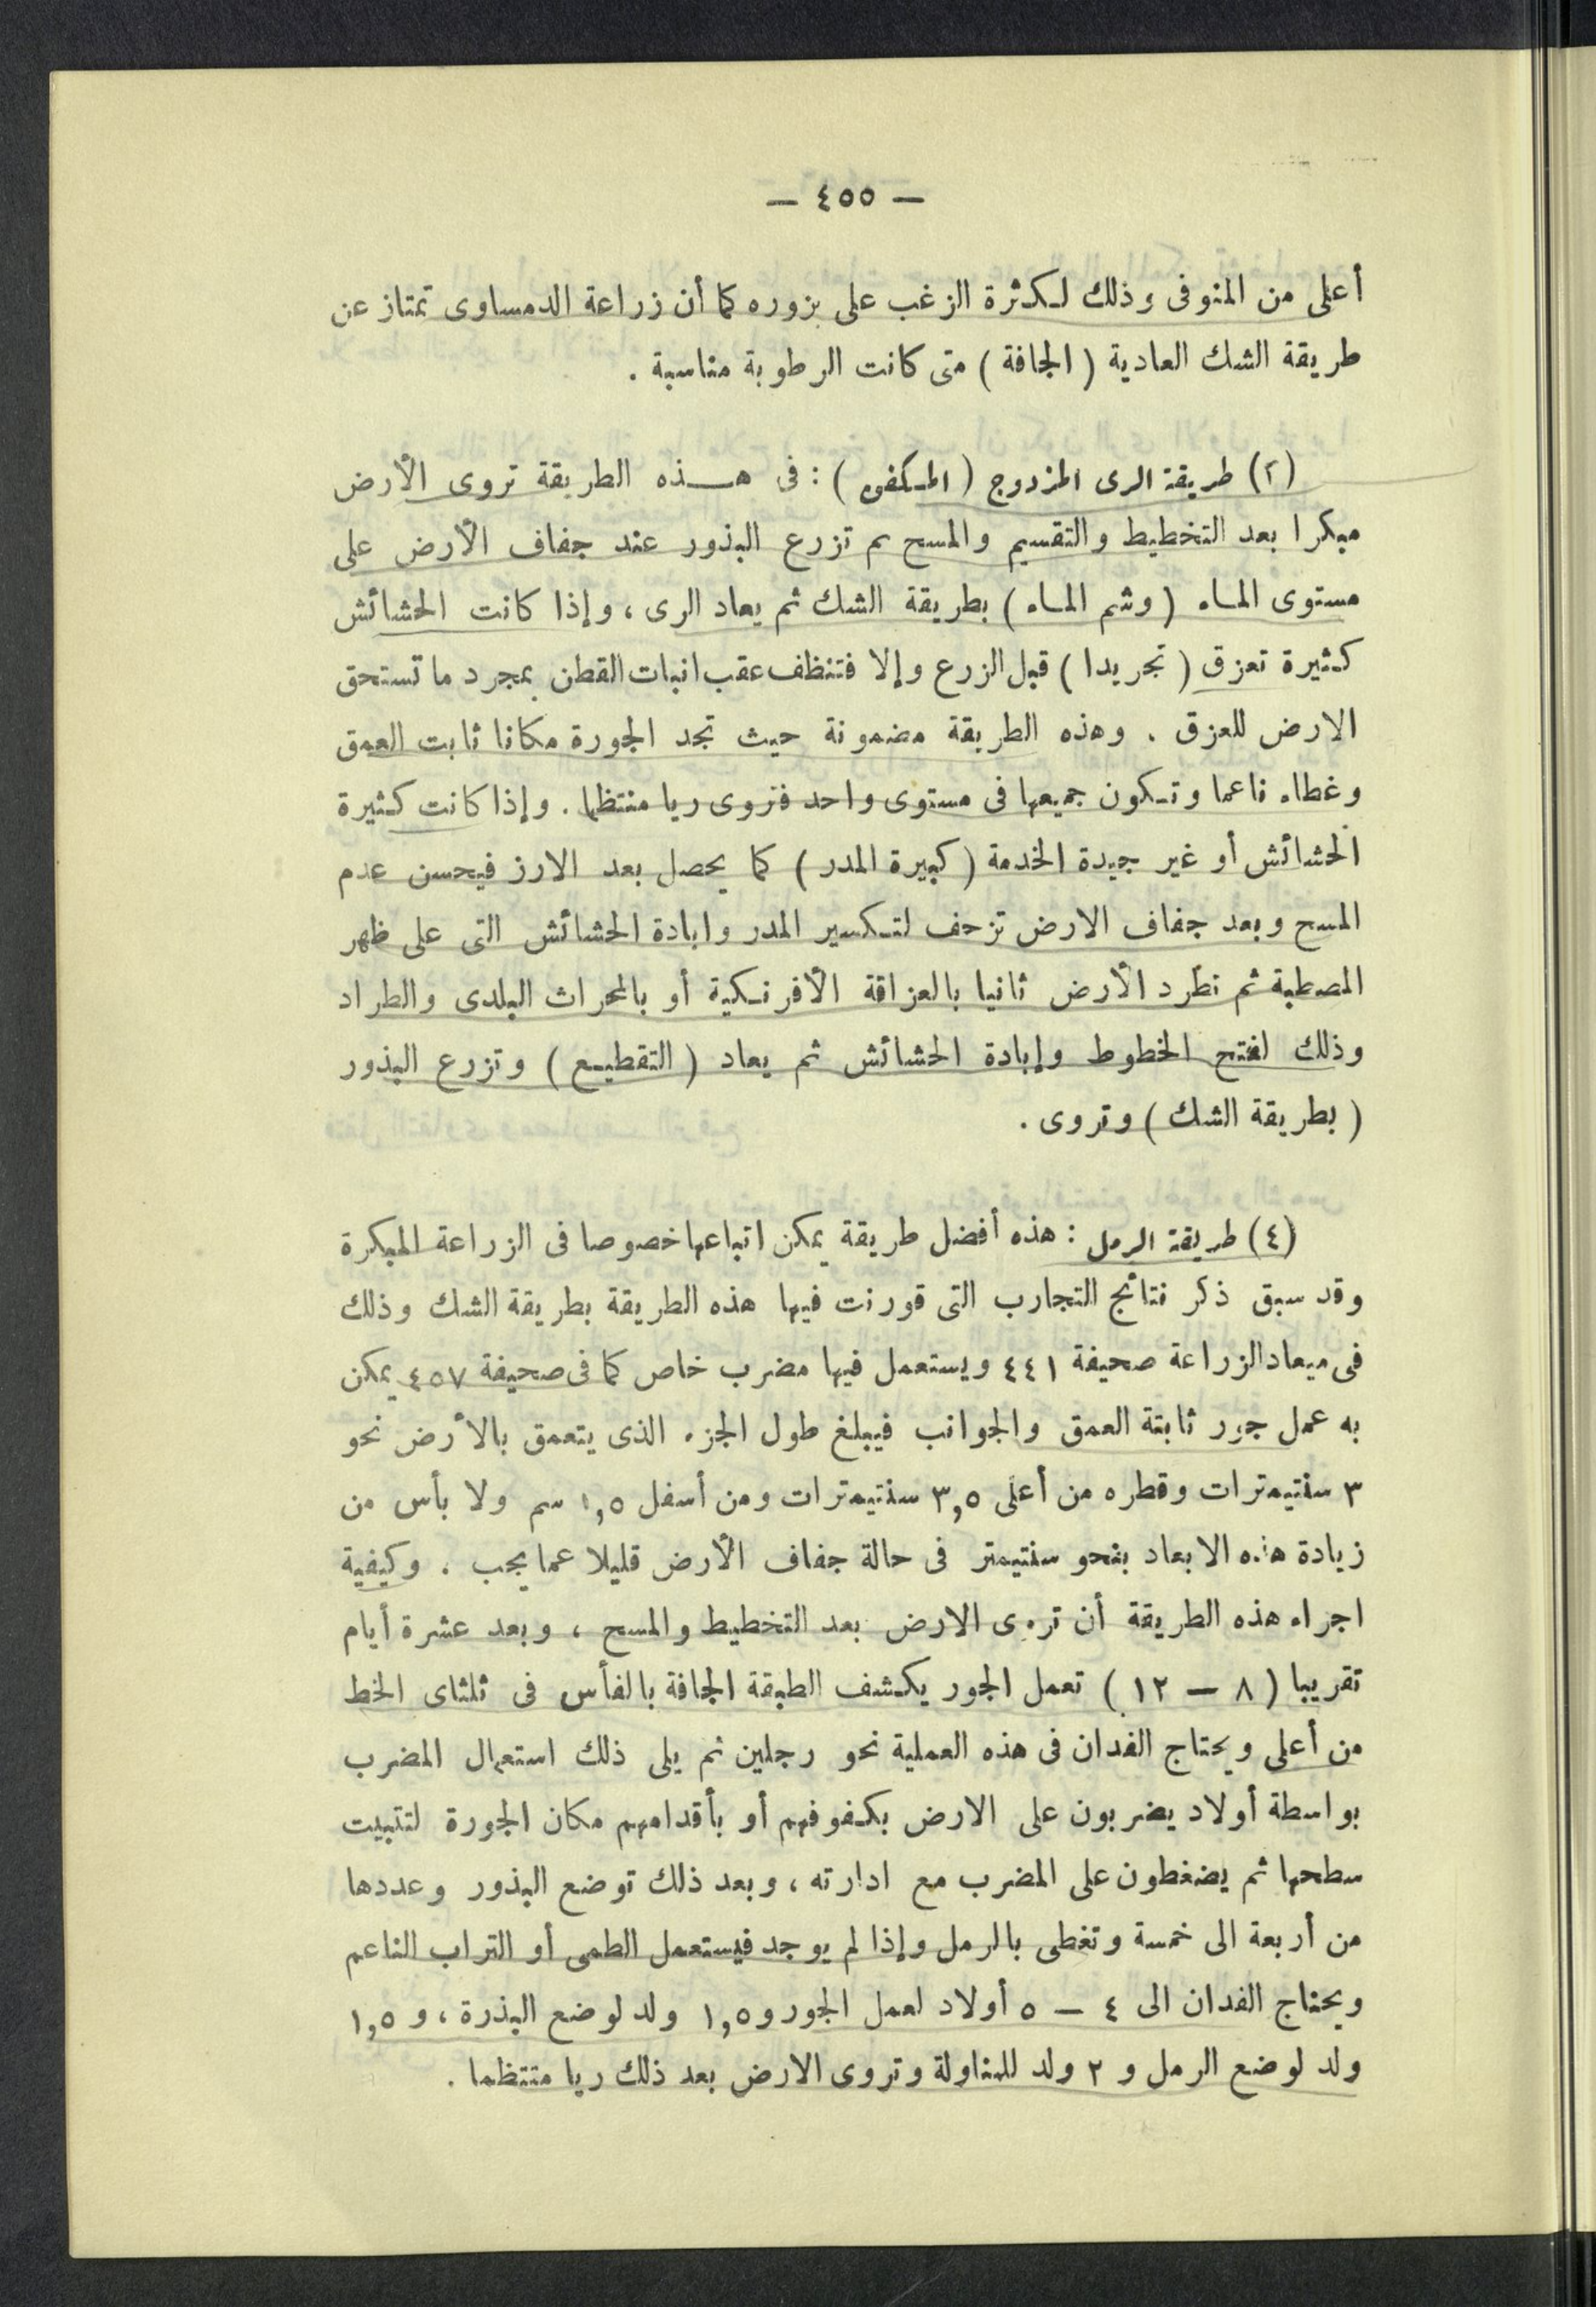 — ٤٥٥ —
أعلى من المنوفى وذلك لكثرة الزغب على بزوره كما أن زراعة الدمساوى تمتاز عن
طريقة الشك العادية (الجافة) متى كانت الرطوبة مناسبة .
(٢) طريقة الرى المزدوج (المكفى) : فى هذه الطريقة تروى الأرض
مبكرا بعد التخطيط والتقسيم والمسح ثم تزرع البذور عند جفاف الأرض على
مستوى الماء (وشم الماء) بطريقة الشك ثم يعاد الرى ، وإذا كانت الحشائش
كثيرة تعزق (تجريدا) قبل الزرع وإلا فتنظف عقب انبات القطن بمجرد ما تستحق
الارض للعزق . وهذه الطريقة مضمونة حيث تجد الجورة مكانا ثابت العمق
وغطاء ناعما وتكون جميعها فى مستوى واحد فتروى ريا منتظما . وإذا كانت كثيرة
الحشائش أو غير جيدة الخدمة (كبيرة المدر) كما يحصل بعد الارز فيحسن عدم
المسح وبعد جفاف الارض تزحف لتكسير المدر وابادة الحشائش التى على ظهر
المصطبة ثم تطرد الأرض ثانيا بالعزاقة الأفرنكية أو بالمحراث البلدى والطراد
وذلك لفتح الخطوط وإبادة الحشائش ثم يعاد (التقطيع) وتزرع البذور
(بطريقة الشك) وتروى .
(٤) طريقة الرمل : هذه أفضل طريقة يمكن اتباعها خصوصا فى الزراعة المبكرة
وقد سبق ذكر نتائج التجارب التى قورنت فيها هذه الطريقة بطريقة الشك وذلك
فى ميعاد الزراعة صحيفة ٤٤١ ويستعمل فيها مضرب خاص كما فى صحيفة ٤٥٧ يمكن
به عمل جور ثابتة العمق والجوانب فيبلغ طول الجزء الذى يتعمق بالأرض نحو
٣ سنتيمترات وقطره من أعلى ٣,٥ سنتيمترات ومن أسفل ١,٥ سم ولا بأس من
زيادة هذه الابعاد بنحو سنتيمتر فى حالة جفاف الأرض قليلا عما يجب . وكيفية
اجراء هذه الطريقة أن تروى الارض بعد التخطيط والمسح ، وبعد عشرة أيام
تقريبا (٨ — ١٢) تعمل الجور بكشف الطبقة الجافة بالفأس فى ثلثاى الخط
من أعلى ويحتاج الفدان فى هذه العملية نحو رجلين ثم يلى ذلك استعمال المضرب
بواسطة أولاد يضربون على الارض بكفوفهم أو بأقدامهم مكان الجورة لتثبيت
سطحها ثم يضغطون على المضرب مع ادارته ، وبعد ذلك توضع البذور وعددها
من أربعة الى خمسة وتغطى بالرمل وإذا لم يوجد فيستعمل الطمى أو التراب الناعم
ويحتاج الفدان الى ٤ — ٥ أولاد لعمل الجور و١,٥ ولد لوضع البذرة ، و ١,٥
ولد لوضع الرمل و ٢ ولد للمناولة وتروى الارض بعد ذلك ريا منتظما .